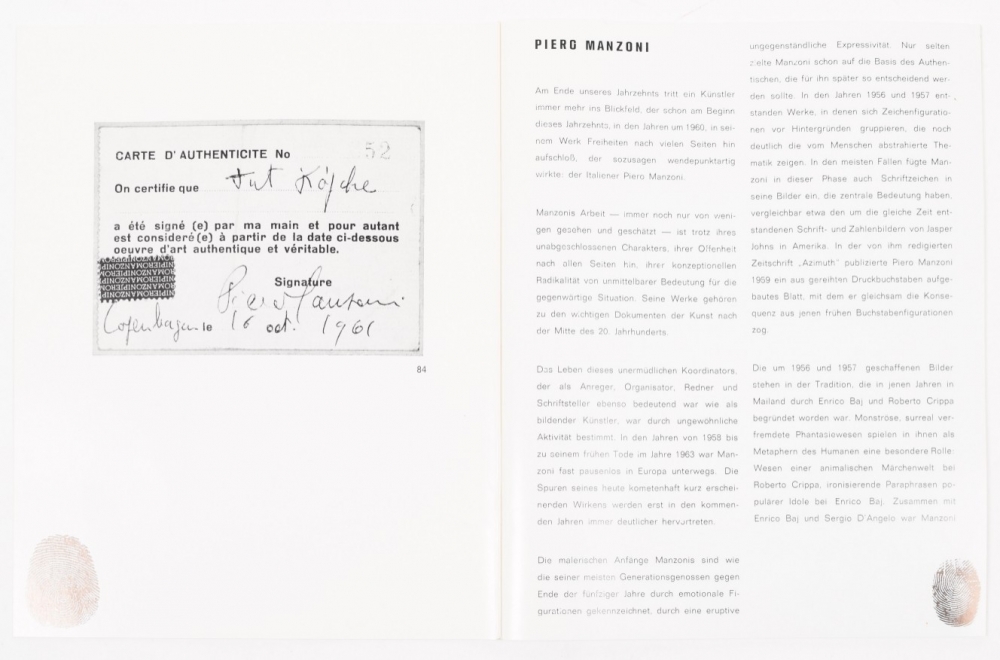 CARTE D'AUTHENTICITE No 52
On certifie que Tut Köpcke
a été signé (e) par ma main et pour autant
est consideré(e) à partir de la date ci-dessous
oeuvre d'art authentique et véritable.
Signature
Piero Manzoni
Copenhagen le 16 oct. 1961
84
PIERO MANZONI
Am Ende unseres Jahrzehnts tritt ein Künstler
immer mehr ins Blickfeld, der schon am Beginn
dieses Jahrzehnts, in den Jahren um 1960, in sei-
nem Werk Freiheiten nach vielen Seiten hin
aufschloß, der sozusagen wendepunktartig
wirkte: der Italiener Piero Manzoni.
Manzonis Arbeit — immer noch nur von weni-
gen gesehen und geschätzt — ist trotz ihres
unabgeschlossenen Charakters, ihrer Offenheit
nach allen Seiten hin, ihrer konzeptionellen
Radikalität von unmittelbarer Bedeutung für die
gegenwärtige Situation. Seine Werke gehören
zu den wichtigen Dokumenten der Kunst nach
der Mitte des 20. Jahrhunderts.
Das Leben dieses unermüdlichen Koordinators,
der als Anreger, Organisator, Redner und
Schriftsteller ebenso bedeutend war wie als
bildender Künstler, war durch ungewöhnliche
Aktivität bestimmt. In den Jahren von 1958 bis
zu seinem frühen Tode im Jahre 1963 war Man-
zoni fast pausenlos in Europa unterwegs. Die
Spuren seines heute kometenhaft kurz erschei-
nenden Wirkens werden erst in den kommen-
den Jahren immer deutlicher hervortreten.
Die malerischen Anfänge Manzonis sind wie
die seiner meisten Generationsgenossen gegen
Ende der fünfziger Jahre durch emotionale Fi-
gurationen gekennzeichnet, durch eine eruptive
ungegenständliche Expressivität. Nur selten
zielte Manzoni schon auf die Basis des Authen-
tischen, die für ihn später so entscheidend wer-
den sollte. In den Jahren 1956 und 1957 ent-
standen Werke, in denen sich Zeichenfiguratio-
nen vor Hintergründen gruppieren, die noch
deutlich die vom Menschen abstrahierte The-
matik zeigen. In den meisten Fällen fügte Man-
zoni in dieser Phase auch Schriftzeichen in
seine Bilder ein, die zentrale Bedeutung haben,
vergleichbar etwa den um die gleiche Zeit ent-
standenen Schrift- und Zahlenbildern von Jasper
Johns in Amerika. In der von ihm redigierten
Zeitschrift „Azimuth" publizierte Piero Manzoni
1959 ein aus gereihten Druckbuchstaben aufge-
bautes Blatt, mit dem er gleichsam die Konse-
quenz aus jenen frühen Buchstabenfigurationen
zog.
Die um 1956 und 1957 geschaffenen Bilder
stehen in der Tradition, die in jenen Jahren in
Mailand durch Enrico Baj und Roberto Crippa
begründet worden war. Monströse, surreal ver-
fremdete Phantasiewesen spielen in ihnen als
Metaphern des Humanen eine besondere Rolle:
Wesen einer animalischen Märchenwelt bei
Roberto Crippa, ironisierende Paraphrasen po-
pulärer Idole bei Enrico Baj. Zusammen mit
Enrico Baj und Sergio D'Angelo war Manzoni